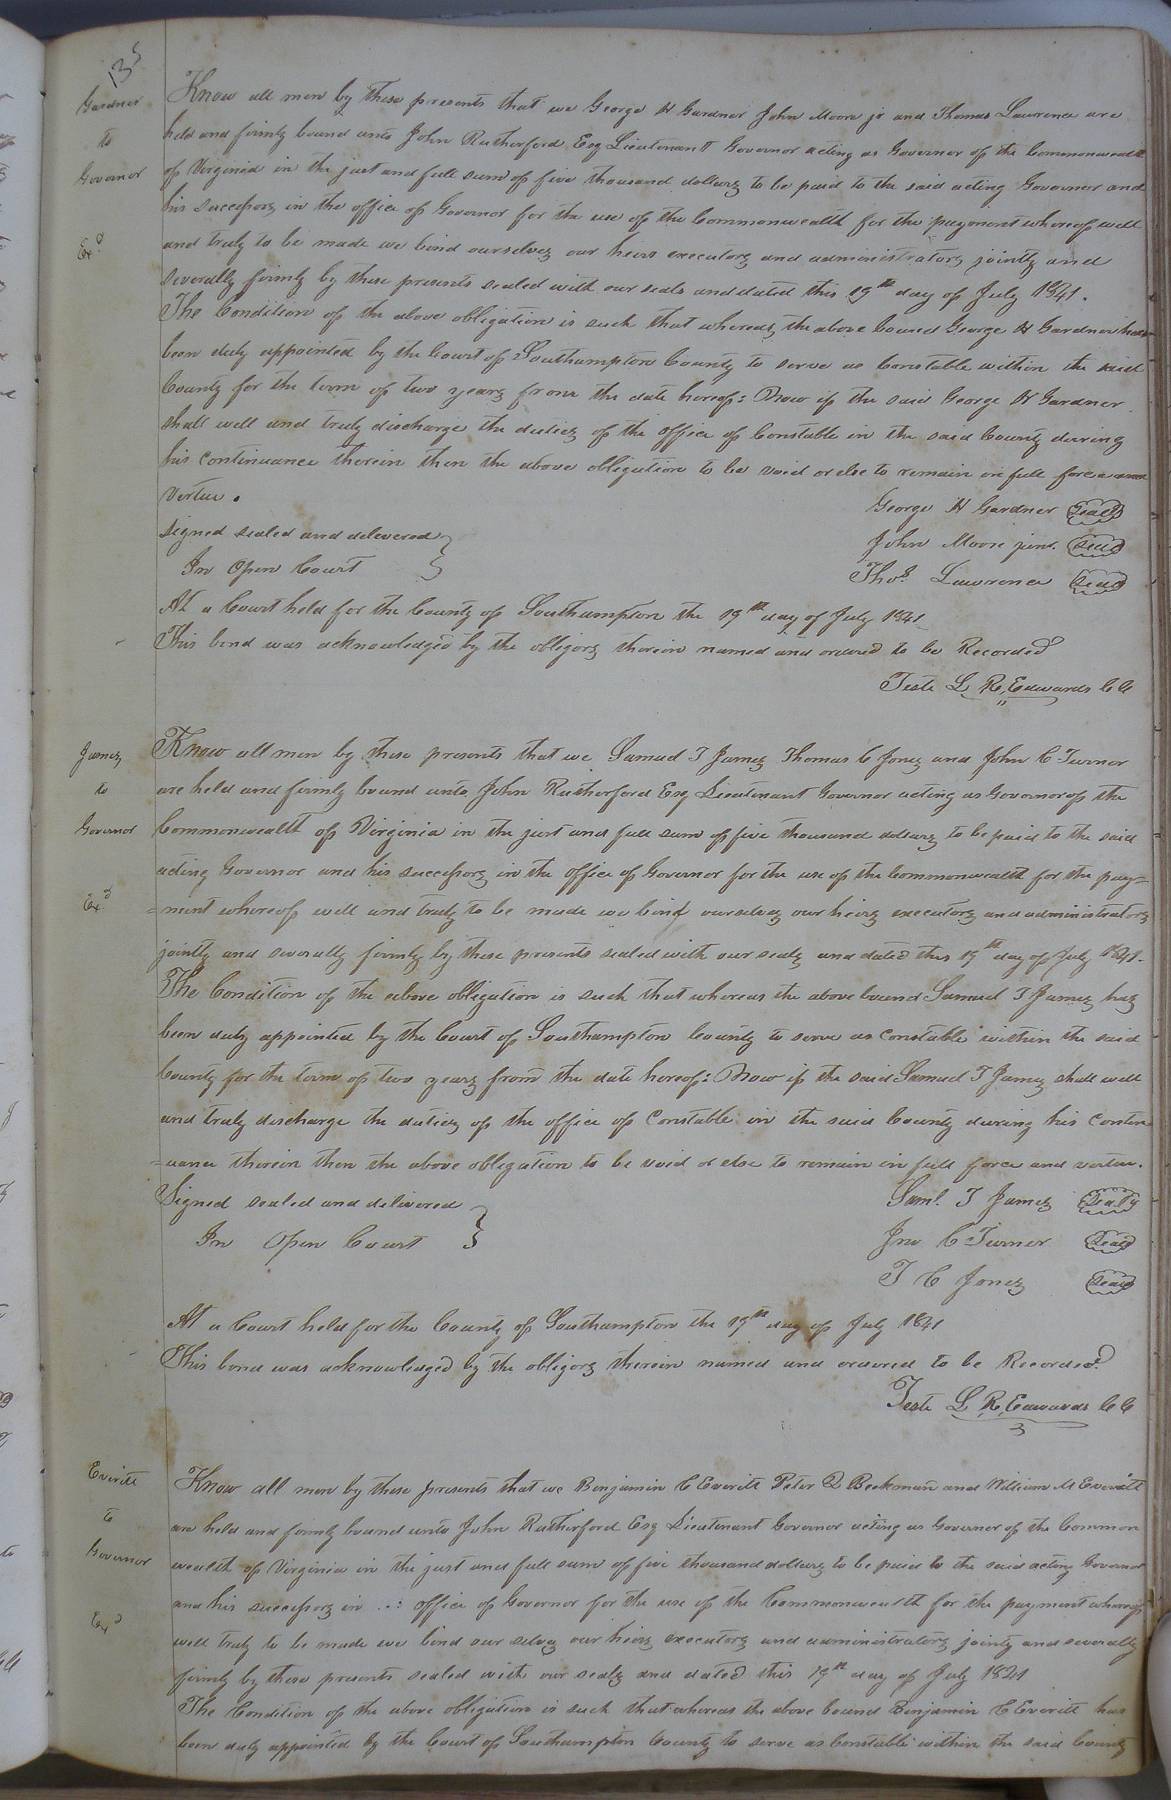 135
Gardner
to
Governor
Exd
Know all men by these presents that we George H Gardner John Moore jr and Thomas Lawrence are
held and firmly bound unto John Rutherford Esq Lieutenant Governor acting as Governor of the Commonwealth
of Virginia in the just and full sum of five thousand dollars to be paid to the said acting Governor and
his successors in the office of Governor for the use of the Commonwealth for the payment whereof well
and truly to be made we bind ourselves our heirs executors and administrators jointly and
severally firmly by these presents sealed with our seals and dated this 19th day of July 1841.
The Condition of the above obligation is such that whereas the above bound George H Gardner has
been duly appointed by the Court of Southampton County to serve as Constable within the said
County for the term of two years from the date hereof: Now if the said George H Gardner
shall well and truly discharge the duties of the office of Constable in the said County during
his continuance therein then the above obligation to be void or else to remain in full force and
vertue.
George H Gardner Seal
signed sealed and delivered
John Moore junr. Seal
In Open Court
Thos. Lawrence Seal
At a Court held for the County of Southampton the 19th day of July 1841
This bond was acknowledged by the obligors therein named and ordered to be Recorded
Teste L. R. Edwards CC
James
to
Governor
Exd
Know all men by these presents that we Samuel T James Thomas C Jones and John C Turner
are held and firmly bound unto John Rutherford Esq Lieutenant Governor acting as Governor of the
Commonwealth of Virginia in the just and full sum of five thousand dollars to be paid to the said
acting Governor and his successors in the office of Governor for the use of the Commonwealth for the pay=
=ment whereof well and truly to be made we bind ourselves our heirs executors and administrators
jointly and severally firmly by these presents sealed with our seals and dated this 19th day of July 1841.
The Condition of the above obligation is such that whereas the above bound Samuel T James has
been duly appointed by the Court of Southampton County to serve as Constable within the said
County for the term of two years from the date hereof: Now if the said Samuel T James shall well
and truly discharge the duties of the office of Constable in the said County during his contin
=uance therein then the above obligation to be void or else to remain in full force and vertue.
Signed sealed and delivered
Saml. T James Seal
In Open Court
Jno C Turner Seal
T C Jones Seal
At a Court held for the County of Southampton the 19th day of July 1841
This bond was acknowledged by the obligors therein named and ordered to be Recorded
Teste L. R. Edwards CC
Everitt
to
Governor
Exd
Know all men by these presents that we Benjamin C Everitt Peter D Beekman and William M Everitt
are held and firmly bound unto John Rutherford Esq Lieutenant Governor acting as Governor of the Common
wealth of Virginia in the just and full sum of five thousand dollars to be paid to the said acting Governor
and his successors in office of Governor for the use of the Commonwealth for the payment whereof
well truly to be made we bind our selves our heirs executors and administrators jointly and severally
firmly by these presents sealed with our seals and dated this 19th day of July 1841
The Condition of the above obligation is such that whereas the above bound Benjamin C Everitt has
been duly appointed by the Court of Southampton County to serve as Constable within the said County